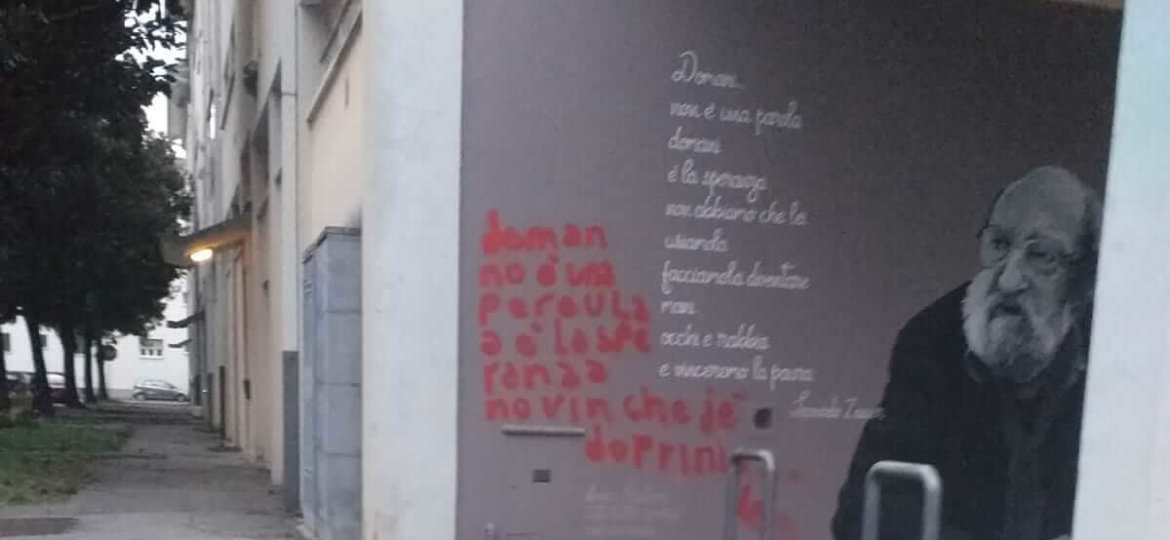 Domani,
non è una parola
domani
è la speranza
non abbiamo che lei
usiamola
facciamola diventare
mani
occhi e rabbia
e vinceremo la paura
Leonardo Zanier
doman
no è una
peraula
a è la spe
ranza
no vin che jê
doprìnì